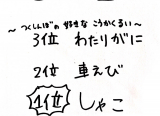 ～つくしんぼの 好きな こうかくるい～
3位 わたりがに
2位 車えび
1位 しゃこ